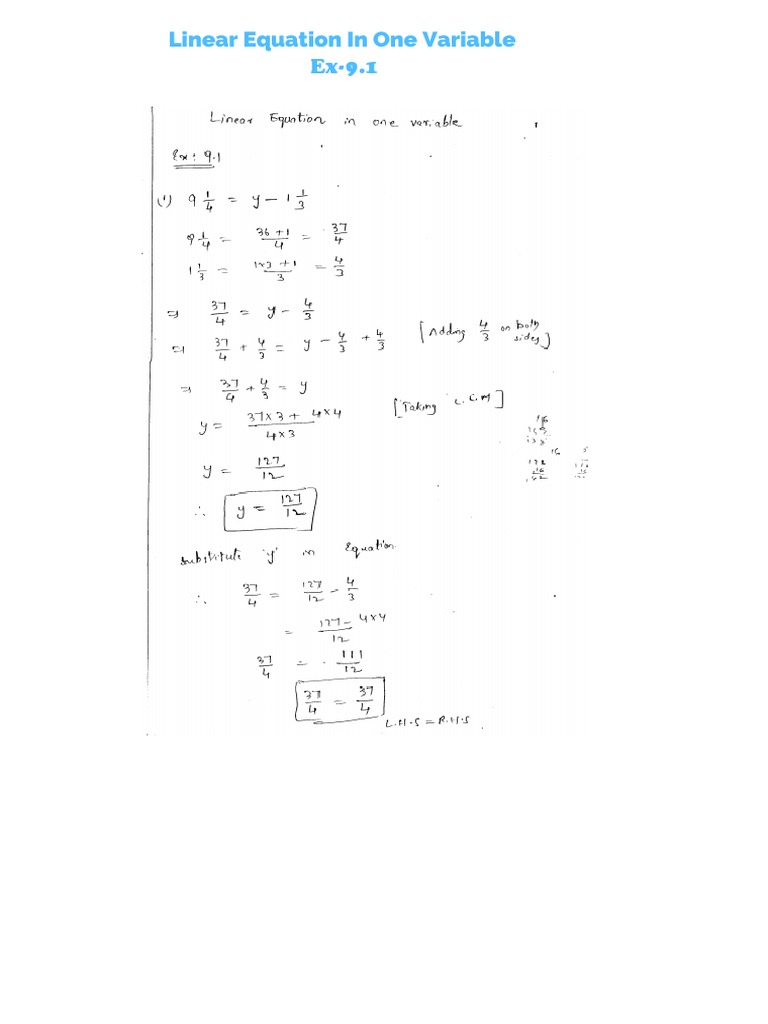 Linear Equation In One Variable
Ex-9.1
Linear Equation in one variable
Ex: 9.1
(1) 9 1/4 = y - 1 1/3
9 1/4 = (36+1)/4 = 37/4
1 1/3 = (1×3+1)/3 = 4/3
⇒ 37/4 = y - 4/3
⇒ 37/4 + 4/3 = y - 4/3 + 4/3 [Adding 4/3 on both sides]
⇒ 37/4 + 4/3 = y
y = (37×3 + 4×4)/(4×3) [Taking L.C.M]
y = 127/12
∴ y = 127/12
substitute 'y' in Equation.
∴ 37/4 = 127/12 - 4/3
= (127 - 4×4)/12
37/4 = 111/12
37/4 = 37/4
L.H.S = R.H.S